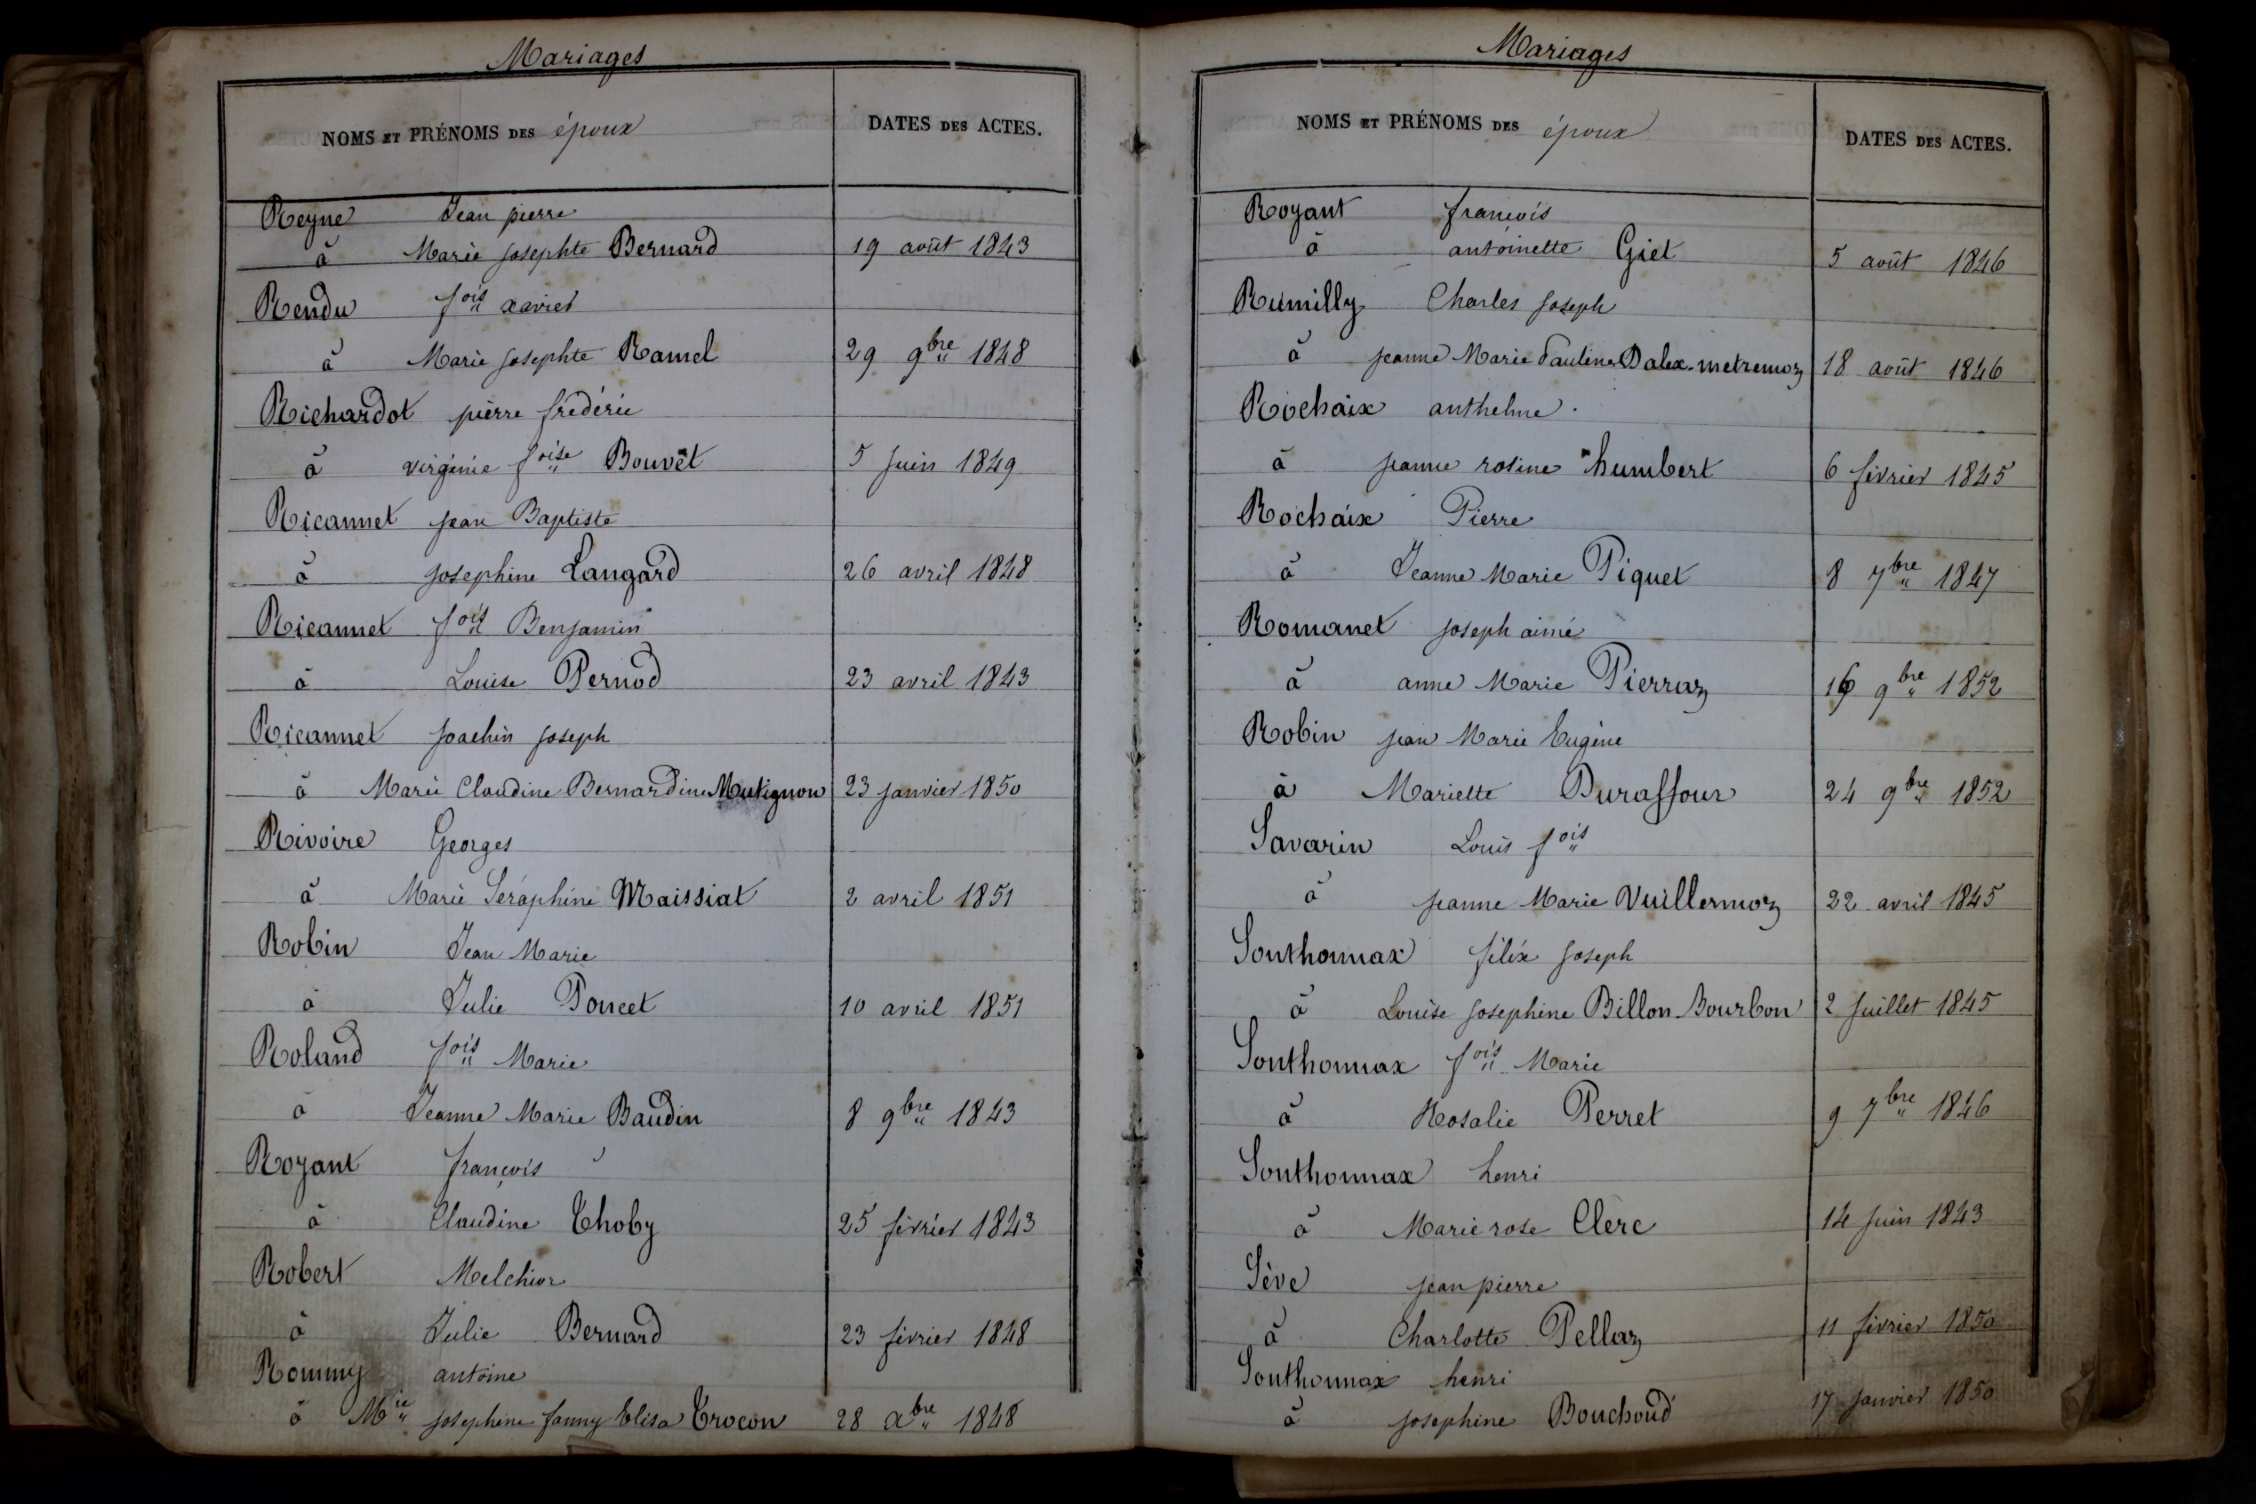 Mariages
NOMS ET PRÉNOMS DES époux
DATES DES ACTES.
Reyne Jean pierre
à Marie Josephte Bernard 19 août 1843
Rendu fois xavier
à Marie Josephte Ramel 29 9bre 1848
Richardot pierre frédéric
à virginie foise Bouvet 5 Juin 1849
Ricannet jean Baptiste
à Josephine Langard 26 avril 1848
Ricannet fois Benjamin
à Louise Pernod 23 avril 1843
Ricannet Joachin Joseph
à Marie Claudine Bernardine Mutignon 23 janvier 1850
Rivoire Georges
à Marie Séraphine Maissiat 2 avril 1851
Robin Jean Marie
à Julie Poncet 10 avril 1851
Roland fois Marie
à Jeanne Marie Baudin 8 9bre 1843
Royant françois
à Claudine Choby 25 février 1843
Robert Melchior
à Julie Bernard 23 février 1848
Rommy antoine
à Mie Josephine fanny Elisa Crocon 28 Xbre 1848
Mariages
NOMS ET PRÉNOMS DES époux
DATES DES ACTES.
Royant françois
à antoinette Giet 5 août 1846
Rumilly Charles Joseph
à Jeanne Marie Pauline Dalex-metremoz 18 août 1846
Rochaix anthelme.
à Jeanne rosine humbert 6 février 1845
Rochaix Pierre
à Jeanne Marie Piquet 8 7bre 1847
Romanet Joseph aimé
à anne Marie Pierraz 16 9bre 1852
Robin Jean Marie Eugène
à Mariette Duraffour 24 9bre 1852
Savarin Louis fois
à Jeanne Marie Vuillermoz 22 avril 1845
Sonthonnax félix Joseph
à Louise Josephine Billon-Bourbon 2 Juillet 1845
Sonthonnax fois Marie
à Rosalie Perret 9 7bre 1846
Sonthonnax henri
à Marie rose Clerc 14 Juin 1843
Sève jean pierre
à Charlotte Pellaz 11 février 1850
Sonthonnax henri
à Josephine Bouchoud 17 Janvier 1850